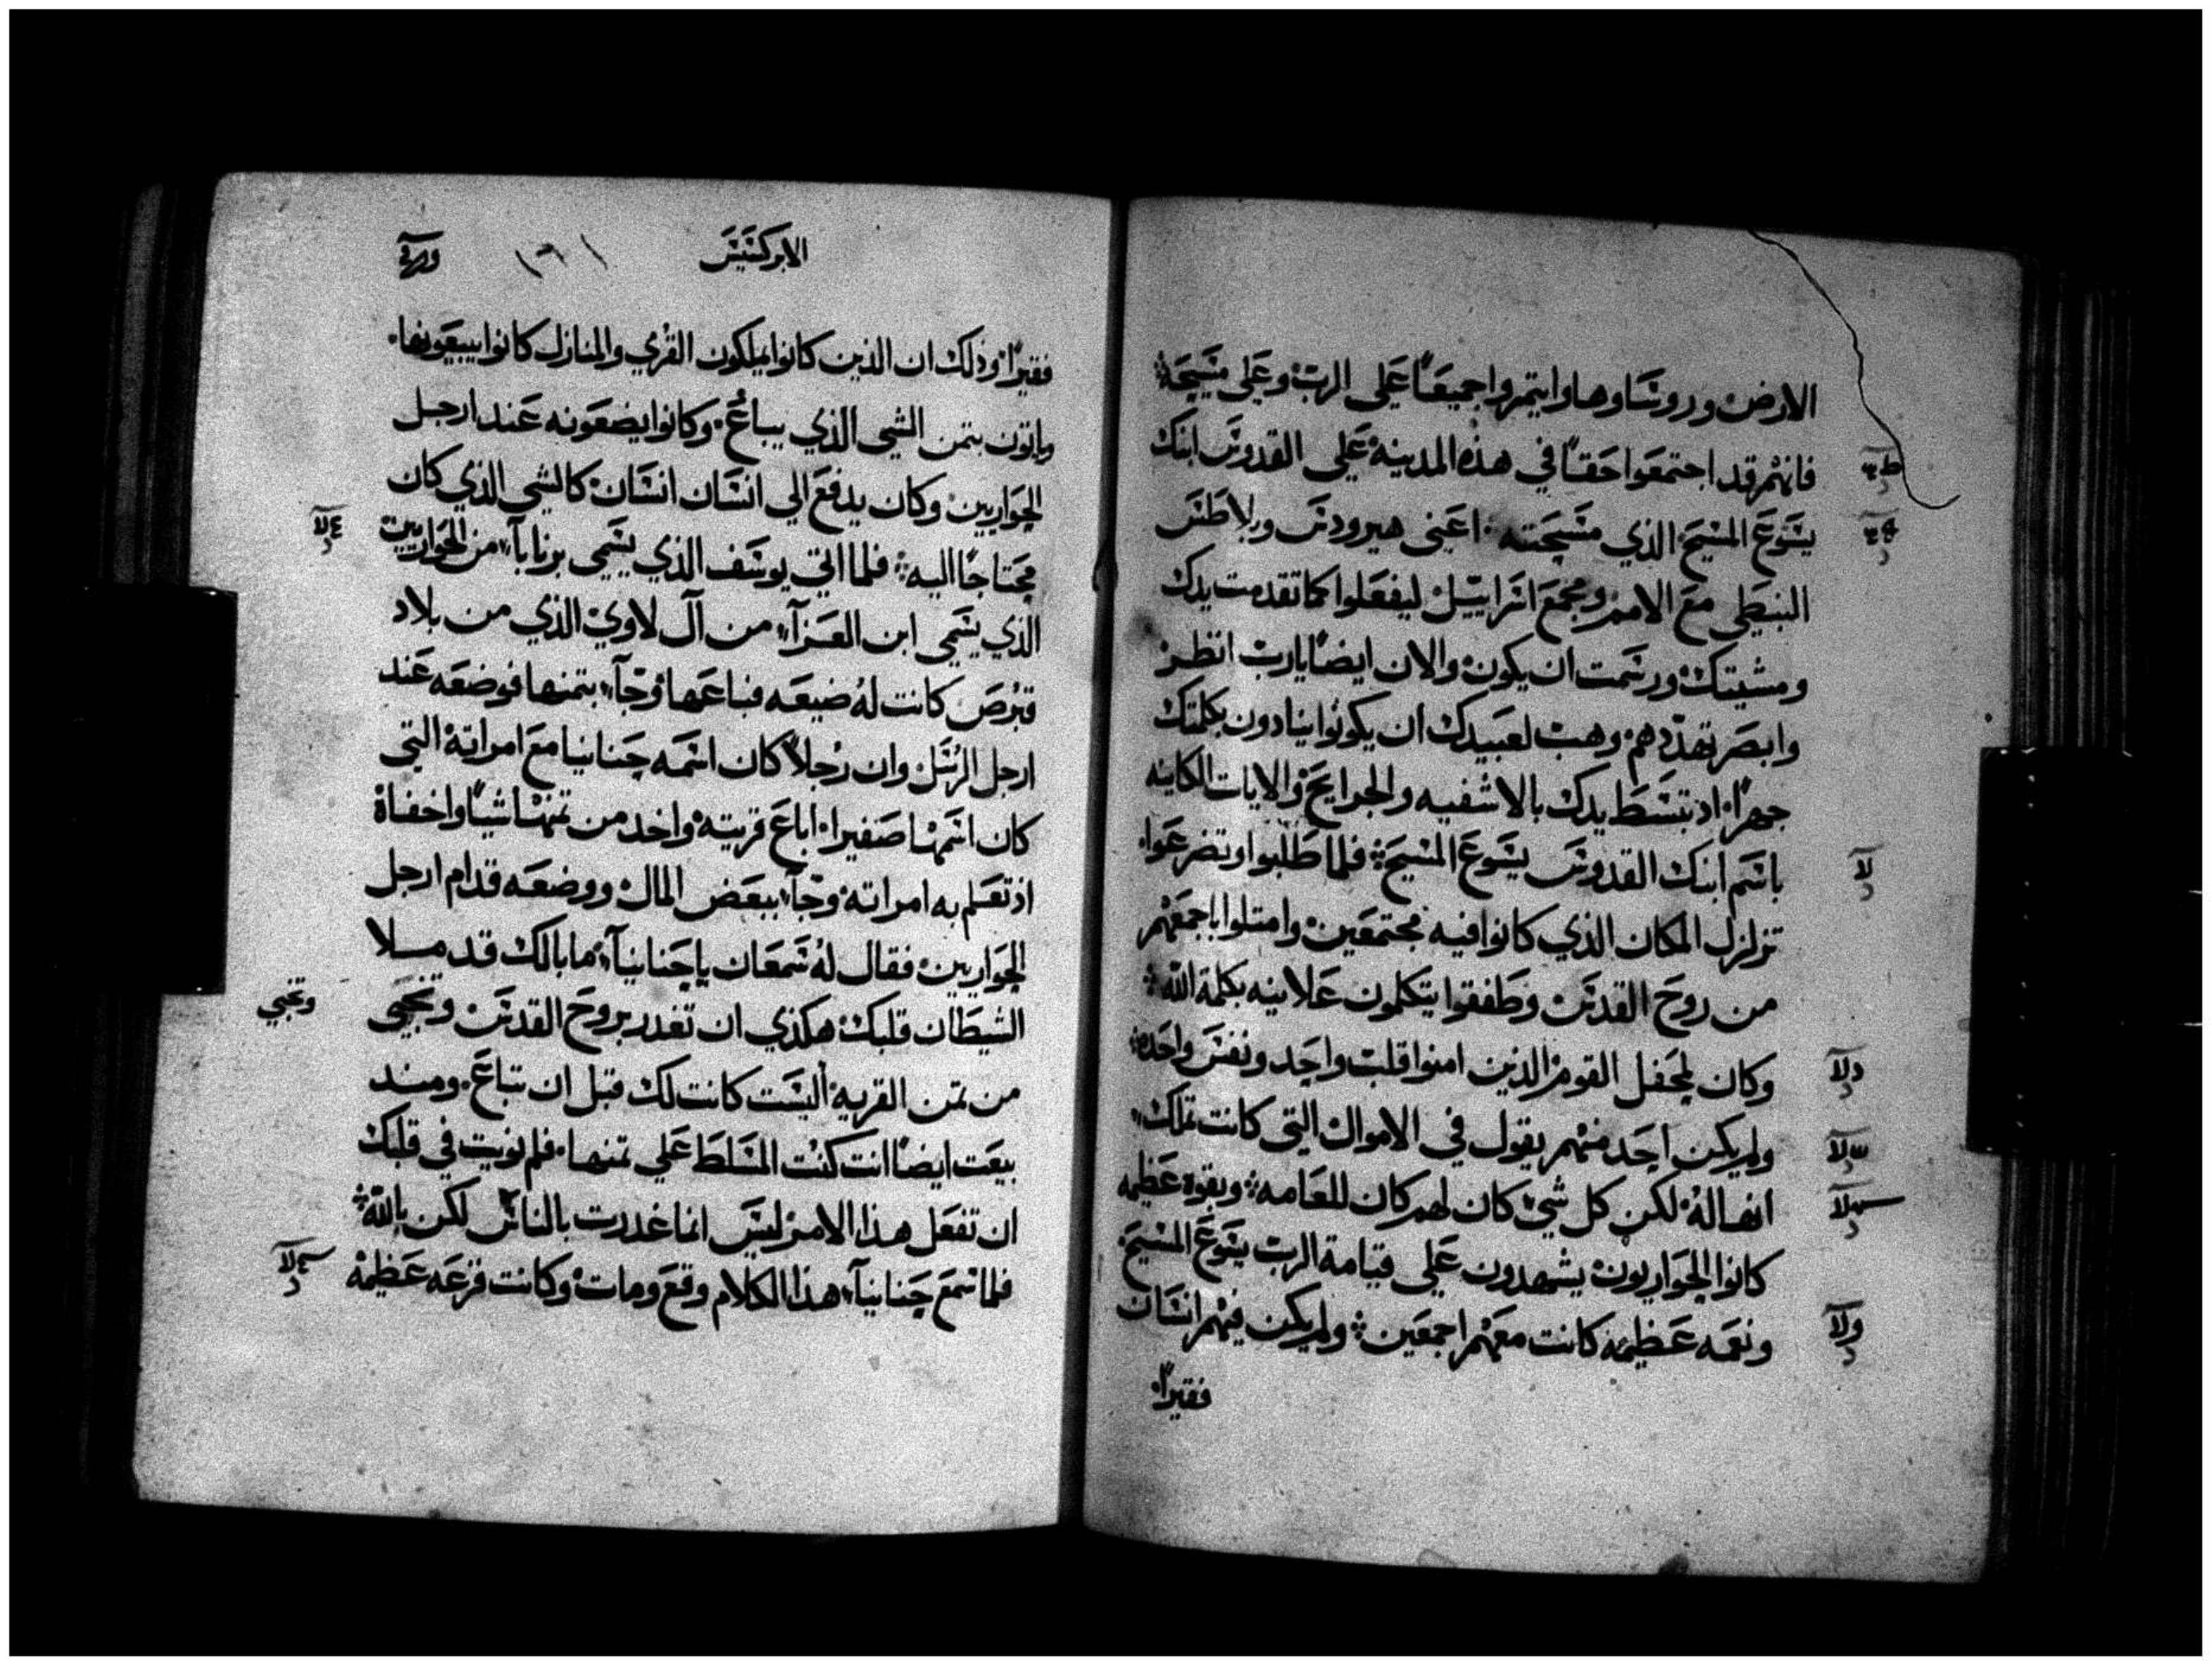 الارض وروساوها وايتمروا جميعًا علي الرب وعلي مسيحه
فانهم قد اجتمعوا حقًا في هذه المدينه علي القدوس ابنك
يسوع المسيح الذي مسحته اعني هيرودس وبلاطس
البنطي مع الامم ومجمع اسراييل ليفعلوا كما تقدمت يدك
ومشيتك ورسمت ان يكون والان ايضًا يارب انظر
وابصر تهددهم وهب لعبيدك ان يكونوا ينادون بكلمتك
جهرًا اذ تبسط يدك بالاشفيه والجرايح والايات الكاينه
باسم ابنك القدوس يسوع المسيح فلما طلبوا وتضرعوا
تزلزل المكان الذي كانوا فيه مجتمعين وامتلوا باجمعهم
من روح القدس وطفقوا يتكلمون علانيه بكلمة الله
وكان لمحفل القوم الذين امنوا قلب واحد ونفس واحده
ولم يكن احد منهم يقول في الاموال التي كانت تملك
انها له لكن كل شي كان لهم كان للعامه وبقوه عظيمه
كانوا الحواريون يشهدون علي قيامة الرب يسوع المسيح
ونعمه عظيمه كانت معهم اجمعين ولم يكن فيهم انسان
فقيرًا
الابركسيس
فقيرًا وذلك ان الذين كانوا يملكون القري والمنازل كانوا يبيعونها
وياتون بتمن الشي الذي يباع وكانوا يضعونه عند ارجل
الحواريين وكان يدفع الي انسان انسان كالشي الذي كان
محتاجًا اليه فلما اتي يوسف الذي يسمي برنابا من الحواريين
الذي يسمي ابن العزآ من آل لاوي الذي من بلاد
قبرص كانت له ضيعه فباعها وجآ بتمنها فوضعه عند
ارجل الرسل وان رجلاً كان اسمه حنانيا مع امراته التي
كان اسمها صفيرا اباع قريته واخد من تمنها شيًا واخفاه
اذ تعلم به امراته وجآ ببعض المال ووضعه قدام ارجل
الحواريين فقال له شمعان يا حنانيآ ما بالك قد مسلا
الشيطان قلبك هكذي ان تغدر بروح القدس وتخبي
وتخبي
من تمن القريه أليست كانت لك قبل ان تباع ومند
بيعت ايضًا انت كنت المسلط علي تمنها فلم نويت في قلبك
ان تفعل هذا الامر ليس انما غدرت بالناس لكن بالله
فلما سمع حنانيآ هذا الكلام وقع ومات وكانت فزعه عظيمه